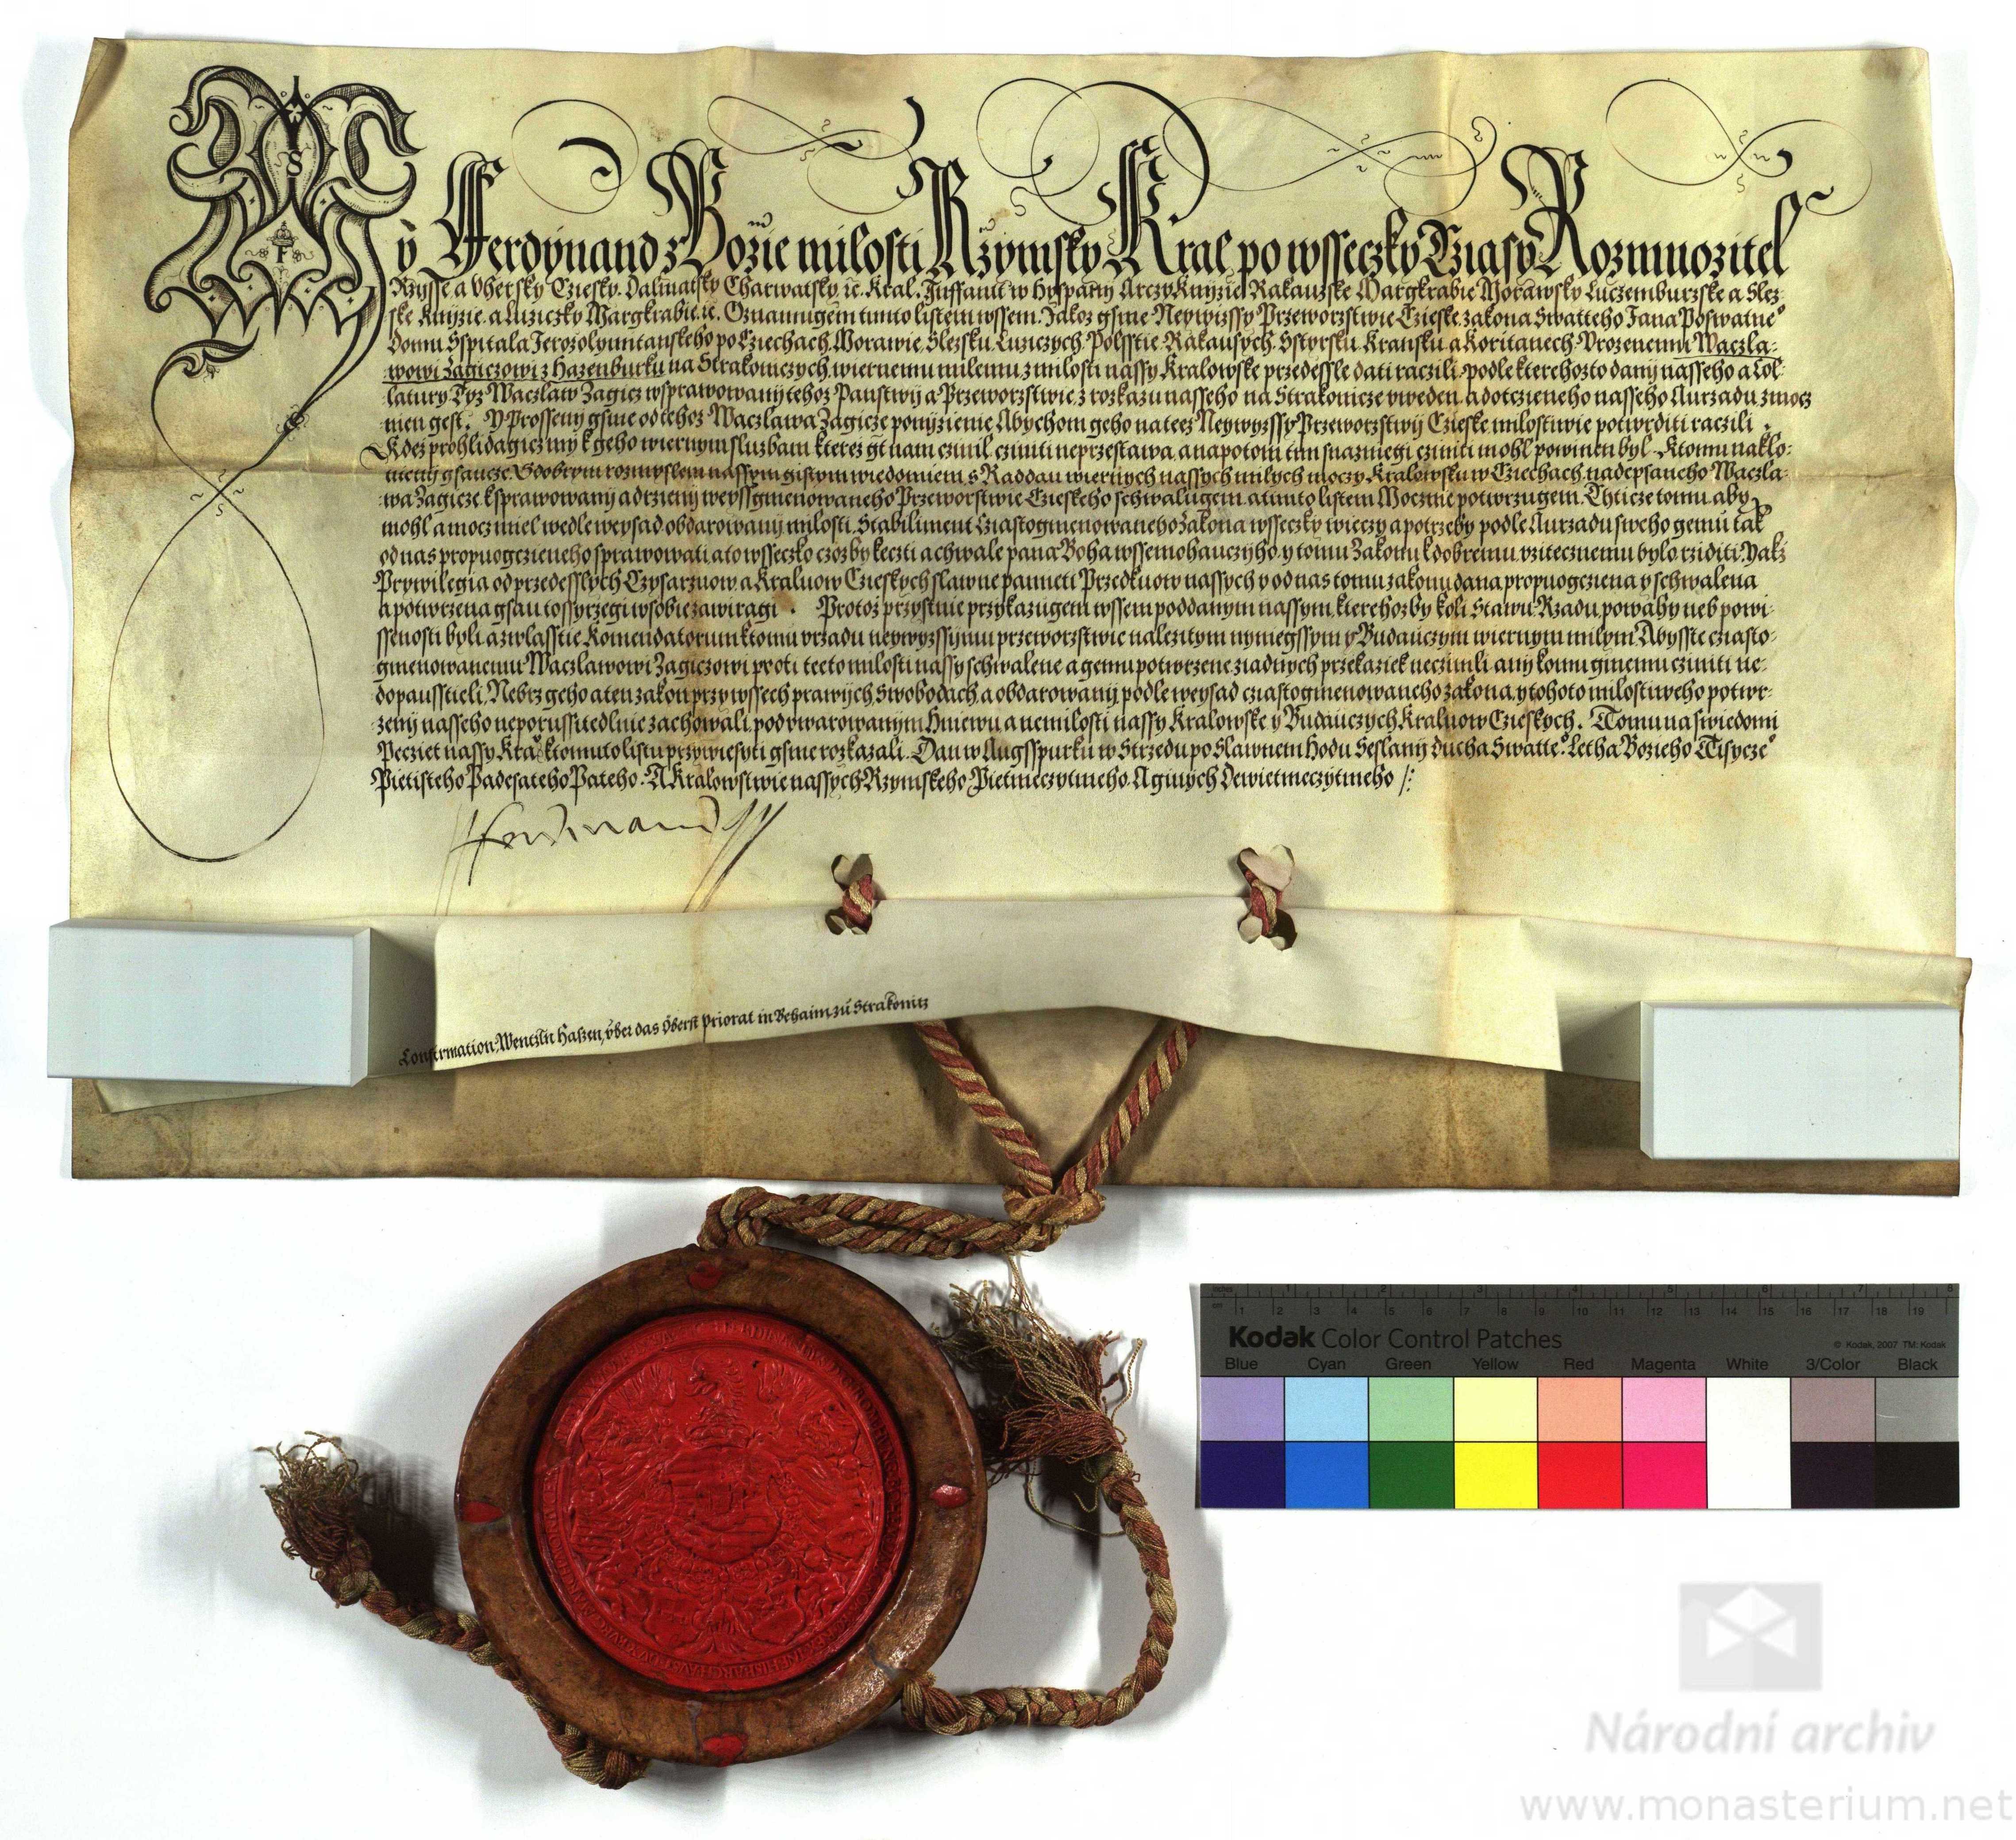 Wy Ferdynand z Bozie milosti Rzymsky Kral po wsseczky Cziasy Rozmnozitel
Rzysse a Uhersky Cziesky, Dalmatsky Charwatsky, ic. Kral. Inffant w Hyspany Arczy Knyzie Rakauzske Margkrabie Morawsky Luczemburzske a Slez-
ske Knyzie, a Luziczky Margkrabie, ic. Oznamugem timto listem wssem. Jakoz gsme Neywyssy Przeworzstwie Czieske zakona Swatteho Jana Poswatne°
Domu Sspitala Jerozolymitanskeho po Cziechach, Morawie, Slezsku, Luziczych, Polsstie, Rakausych, Sstyrsku, Kransku a Koritanech. Urozenemu Waczla-
wowi Zagiczowi z Hazenburku na Strakoniczych, wiernemu milemu z milosti nassy Kralowske przedessle dati raczili, podle kterehozto dany nasseho a Col-
latury Tyz Waczlaw Zagicz w sprawowany tehoz Panstwij a Przeworzstwie, z rozkazu nasseho na Strakonicze uweden, a dotczieneho nasseho Aurzadu zmocz
nien gest. Y Prosseny gsme od tehoz Waczlawa Zagicze ponijzienie Abychom geho na tez Neywyzssy Przeworzstwij Czieske milostiwie potwrditi raczili.
Kdez prohlidagicz my k geho wiernym sluzbam kterez gt nam czinil, cziniti neprzestawa, a napotom tim snazniegi cziniti mohl powinen byl. K tomu naklo-
nieny gsaucze. S dobrym rozmyslem nassym gistym wiedomiem, s Raddau wiernych nassych milych, moczy Kralowsku w Cziechach, nadepsaneho Waczla-
wa Zagicze, k sprawowany a drzeny weyss gmenowaneho Przeworstwie Czieskeho schwalugem, a timto listem Mocznie potwrzugem. Chticze tomu aby
mohl a moc miel wedle weysad obdarowany milosti, Stabiliment Cziastogmenowaneho Zakona wsseczky wieczy a potrzeby podle Aurzadu sweho gemu tak
od nas propuogczieneho sprawowati, a to wsseczko czozby ke czti a chwale pana Boha wssemohauczyho, y tomu Zakonu k dobremu uzitecznemu bylo rziditi. Yakz
Prywilegia od przedesslych Czysarzuow a Kraluow Czieskych slawne pameti Przedkuow nassych y od nas tomu zakonu dana propuogczena y schwalena
a potwrzena gsau to ssyrzegi w sobie zawiragi. Protoz przystnie przykazugem wssem poddanym nassym, kterehozby koli Stawu, Rzadu, powahy neb powi-
ssenosti byli a zwlasstie Komendatorum k tomu urzadu neywyzssymu przeworzstwie nalezitym nyniegssym y Budauczym wiernym milym, Abysste cziasto-
gmenowanemu Waczlawowi Zagiczowi proti teeto milosti nassy schwalene a gemu potwrzene ziadnych przekaziek neczinili any komu ginemu cziniti ne-
dopausstieli, Nebrz geho a ten zakon przy wssech prawych, Swobodach, a obdarowanij podle weysad cziastogmenowaneho zakona, y tohoto milostiweho potwr-
zeny nasseho neporussitedlnie zachowali, pod uwarowanym Hniewu a nemilosti nassy Kralowske y Budauczych Kraluow Czieskych. Tomu na swiedomi
Pecziet nassy Kra° k tomuto listu przywiesyti gsme rozkazali. Dan w Augsspurku w Strzedu po Slawnem Hodu Seslany ducha Swatte°. Letha Bozieho Tisycze°
Pietisteho Padesateho Pateho. A Kralowstwie nassych Rzymskeho Pietmeczytmeho. A ginych Dewietmeczytmeho /:
Ferdinand
Confirmation Wentzln Hasen, über das Öberst Priorat in Behaim zu Strakonitz
Kodak Color Control Patches
© Kodak, 2007 TM: Kodak
Blue Cyan Green Yellow Red Magenta White 3/Color Black
Národní archiv
www.monasterium.net